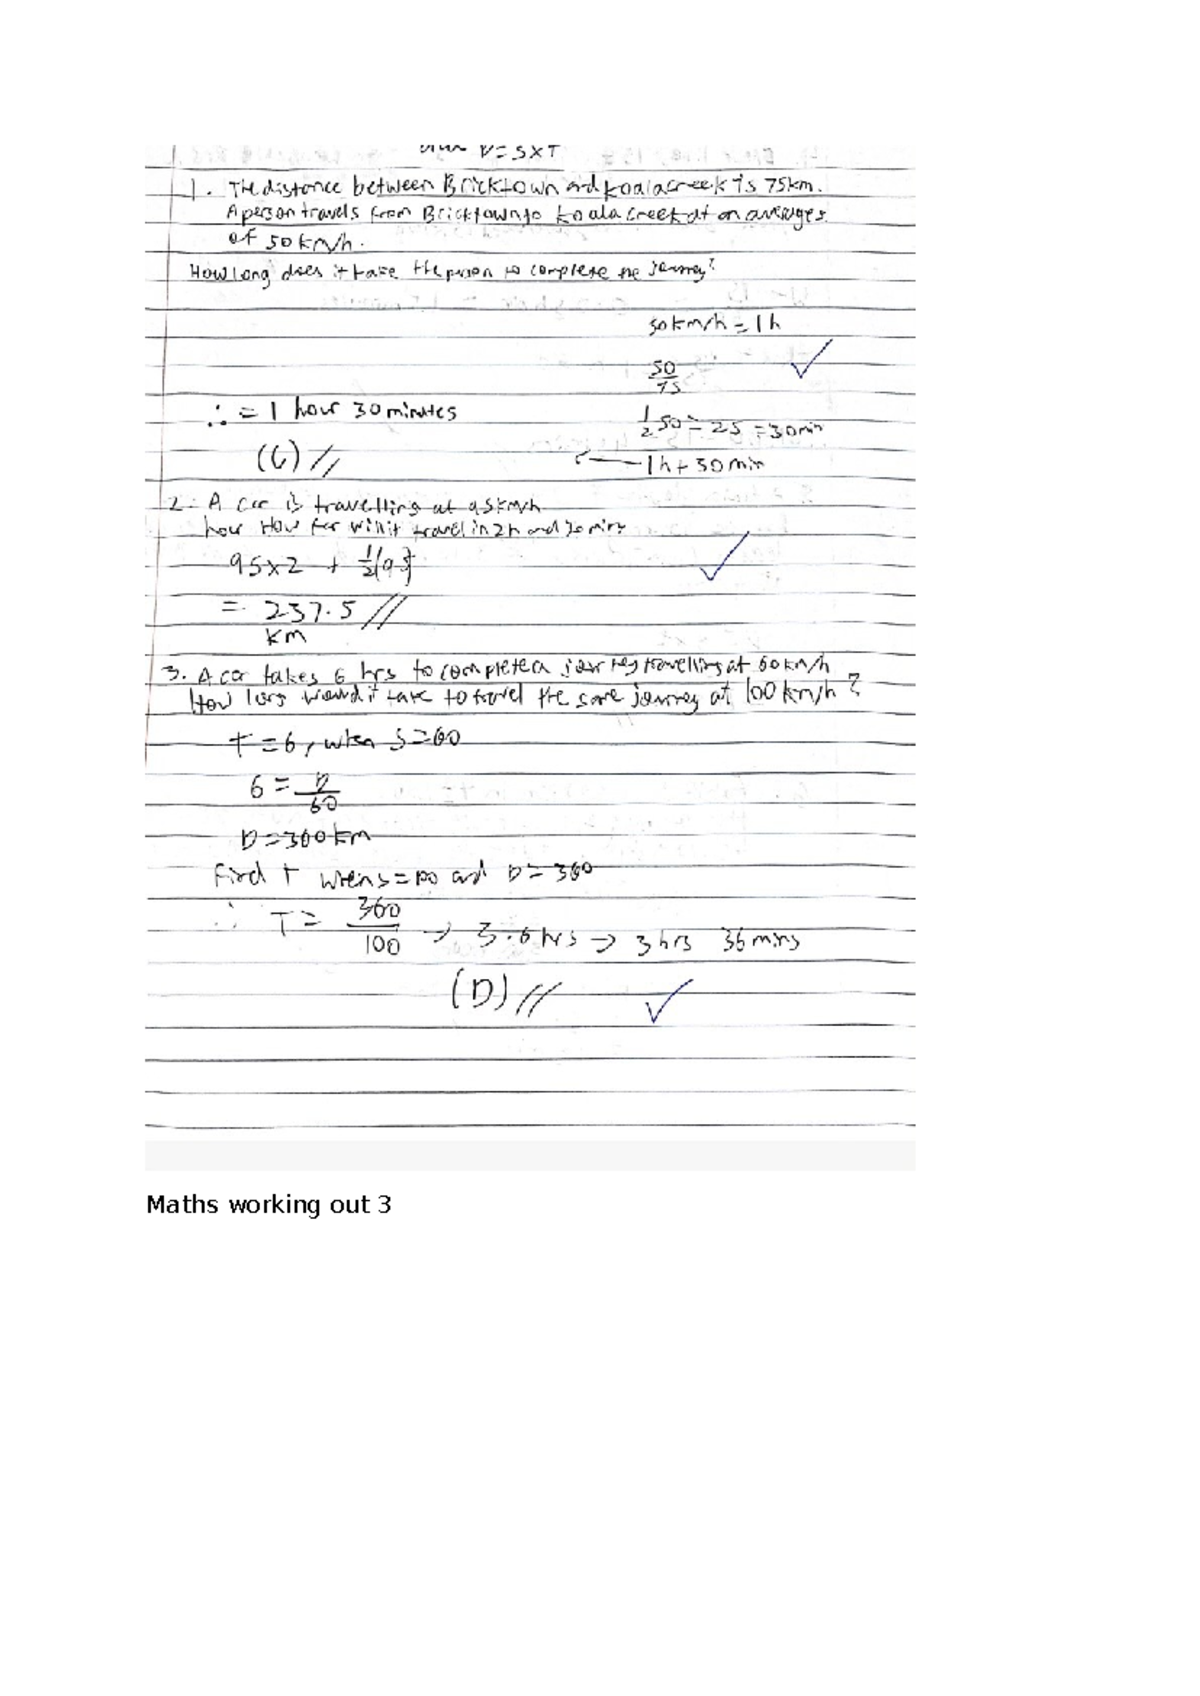 D = S x T
1. The distance between Bricktown and koalacreek is 75km.
A person travels from Bricktown to koala creek at an averages
of 50 km/h.
How long does it take the person to complete the journey?
50km/h = 1h
50
75
∴ = 1 hour 30 minutes
1/2 50 = 25 = 30min
(C) //
1h + 30min
2. A car is travelling at 95km/h
hour How far will it travel in 2h and 30 mins
95x2 + 1/2(95)
= 237.5 //
km
3. A car takes 6 hrs to complete a journey travelling at 60km/h
How long would it take to travel the same journey at 100 km/h?
T = 6, when S = 60
6 = D
60
D = 360km
Find T when s = 100 and D = 360
∴ T = 360
100 → 3.6 hrs → 3 hrs 36 mins
(D) //
Maths working out 3